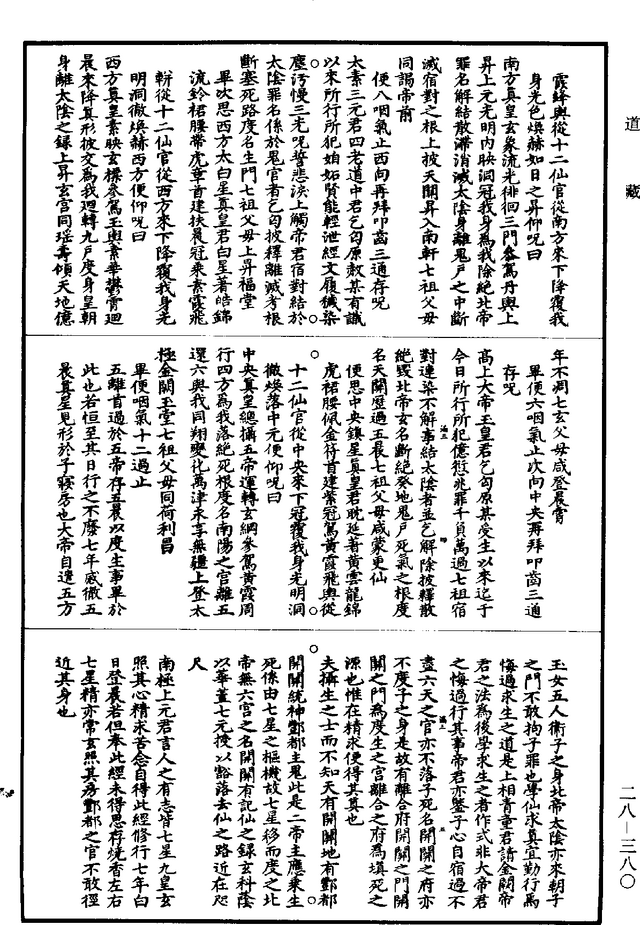 道藏
霞鋒與從十二仙官從南方來下降覆我
身光色煥赫如日之昇仰呪曰
南方真皇玄象流光徘徊三門參駕丹輿上
昇上元光明內映洞冠我身為我除絕北帝
罪名解結散滯消滅太陰身離鬼戶之中斷
滅宿對之根上披天關昇入南軒七祖父母
同謁帝前
便八咽氣止西向再拜叩齒三通存呪
太素三元君四老道中君乞匄原赦某有識
以來所行所犯姤妬賢能輕泄經文履穢染
塵汚慢三光呪誓悲泱上觸帝君宿對結於
太陰罪名係於鬼官者乞匄披釋離滅考根
斷塞死路度名生門七祖父母上昇福堂
畢次思西方太白星真皇君白星著皓錦
流鈴裙腰帶虎章首建扶晨冠乘素霞飛
軿從十二仙官從西方來下降覆我身光
明洞徹煥赫西方便仰呪曰
西方真皇素映玄標參駕玉輿素華鬱霄迴
晨來降真形披交為我迴轉九戶度身皇朝
身離太陰之錄上昇玄宮同瑶壽傾天地億
年不凋七玄父母咸登晨霄
畢便六咽氣止次向中央再拜叩齒三通
存呪
高上大帝玉皇君乞匄原某受生以來迄于
今日所行所犯億愆兆罪千負萬過七祖宿
對連染不解事結太陰者並乞解除披釋散
絕毀北帝玄名斷絕癸地鬼戶死氣之根度
名天關歷過五晨七祖父母咸蒙更仙
便思中央鎮星真皇君耽延著黃雲龍錦
虎裙腰佩金符首建紫冠駕黃霞飛輿從
十二仙官從中央來下冠覆我身光明洞
徹煥落中元便仰呪曰
中央真皇總攝五帝運轉玄綱參駕黃霞周
行四方為我落絕死根度名南陽之宮離五
還六與我同翔變化萬津永享無疆上登太
極金闕玉堂七祖父母同荷利昌
畢便咽氣十二過止
五離首過於五帝存五晨以度生事畢於
此也若恒至其日行之不廢七年感徹五
晨真星見形於子寢房也大帝自遣五方
玉女五人衛子之身北帝太陰亦來朝子
之門不敢拘子罪也學仙求真宜勤行焉
悔過求生之道是上相青童君請金闕帝
君之法為後學求生之者作式非大帝君
之悔過行其事帝君亦鑒子心自宿過不
盡六天之官亦不落子死名開關之府亦
不度子之身是故有離合府開關之門開
關之門為度生之宮離合之府為填死之
源也惟在精求便得其真也
夫攝生之士而不知天有開關地有酆都
開關統神酆都主鬼此是二帝主應乘生
死係由七星之樞機故七星移而度之北
帝無六宮之名開關有記仙之錄玄科陰
以華蓋七元授以豁落去仙之路近在咫
尺
南極上元君言人之有志皆七星九皇玄
照其心精求苦念自得此經修行七年白
日登晨若但奉此經未得思存燒香左右
七星精亦常玄照其房酆都之官不敢徑
近其身也
二八—三八〇